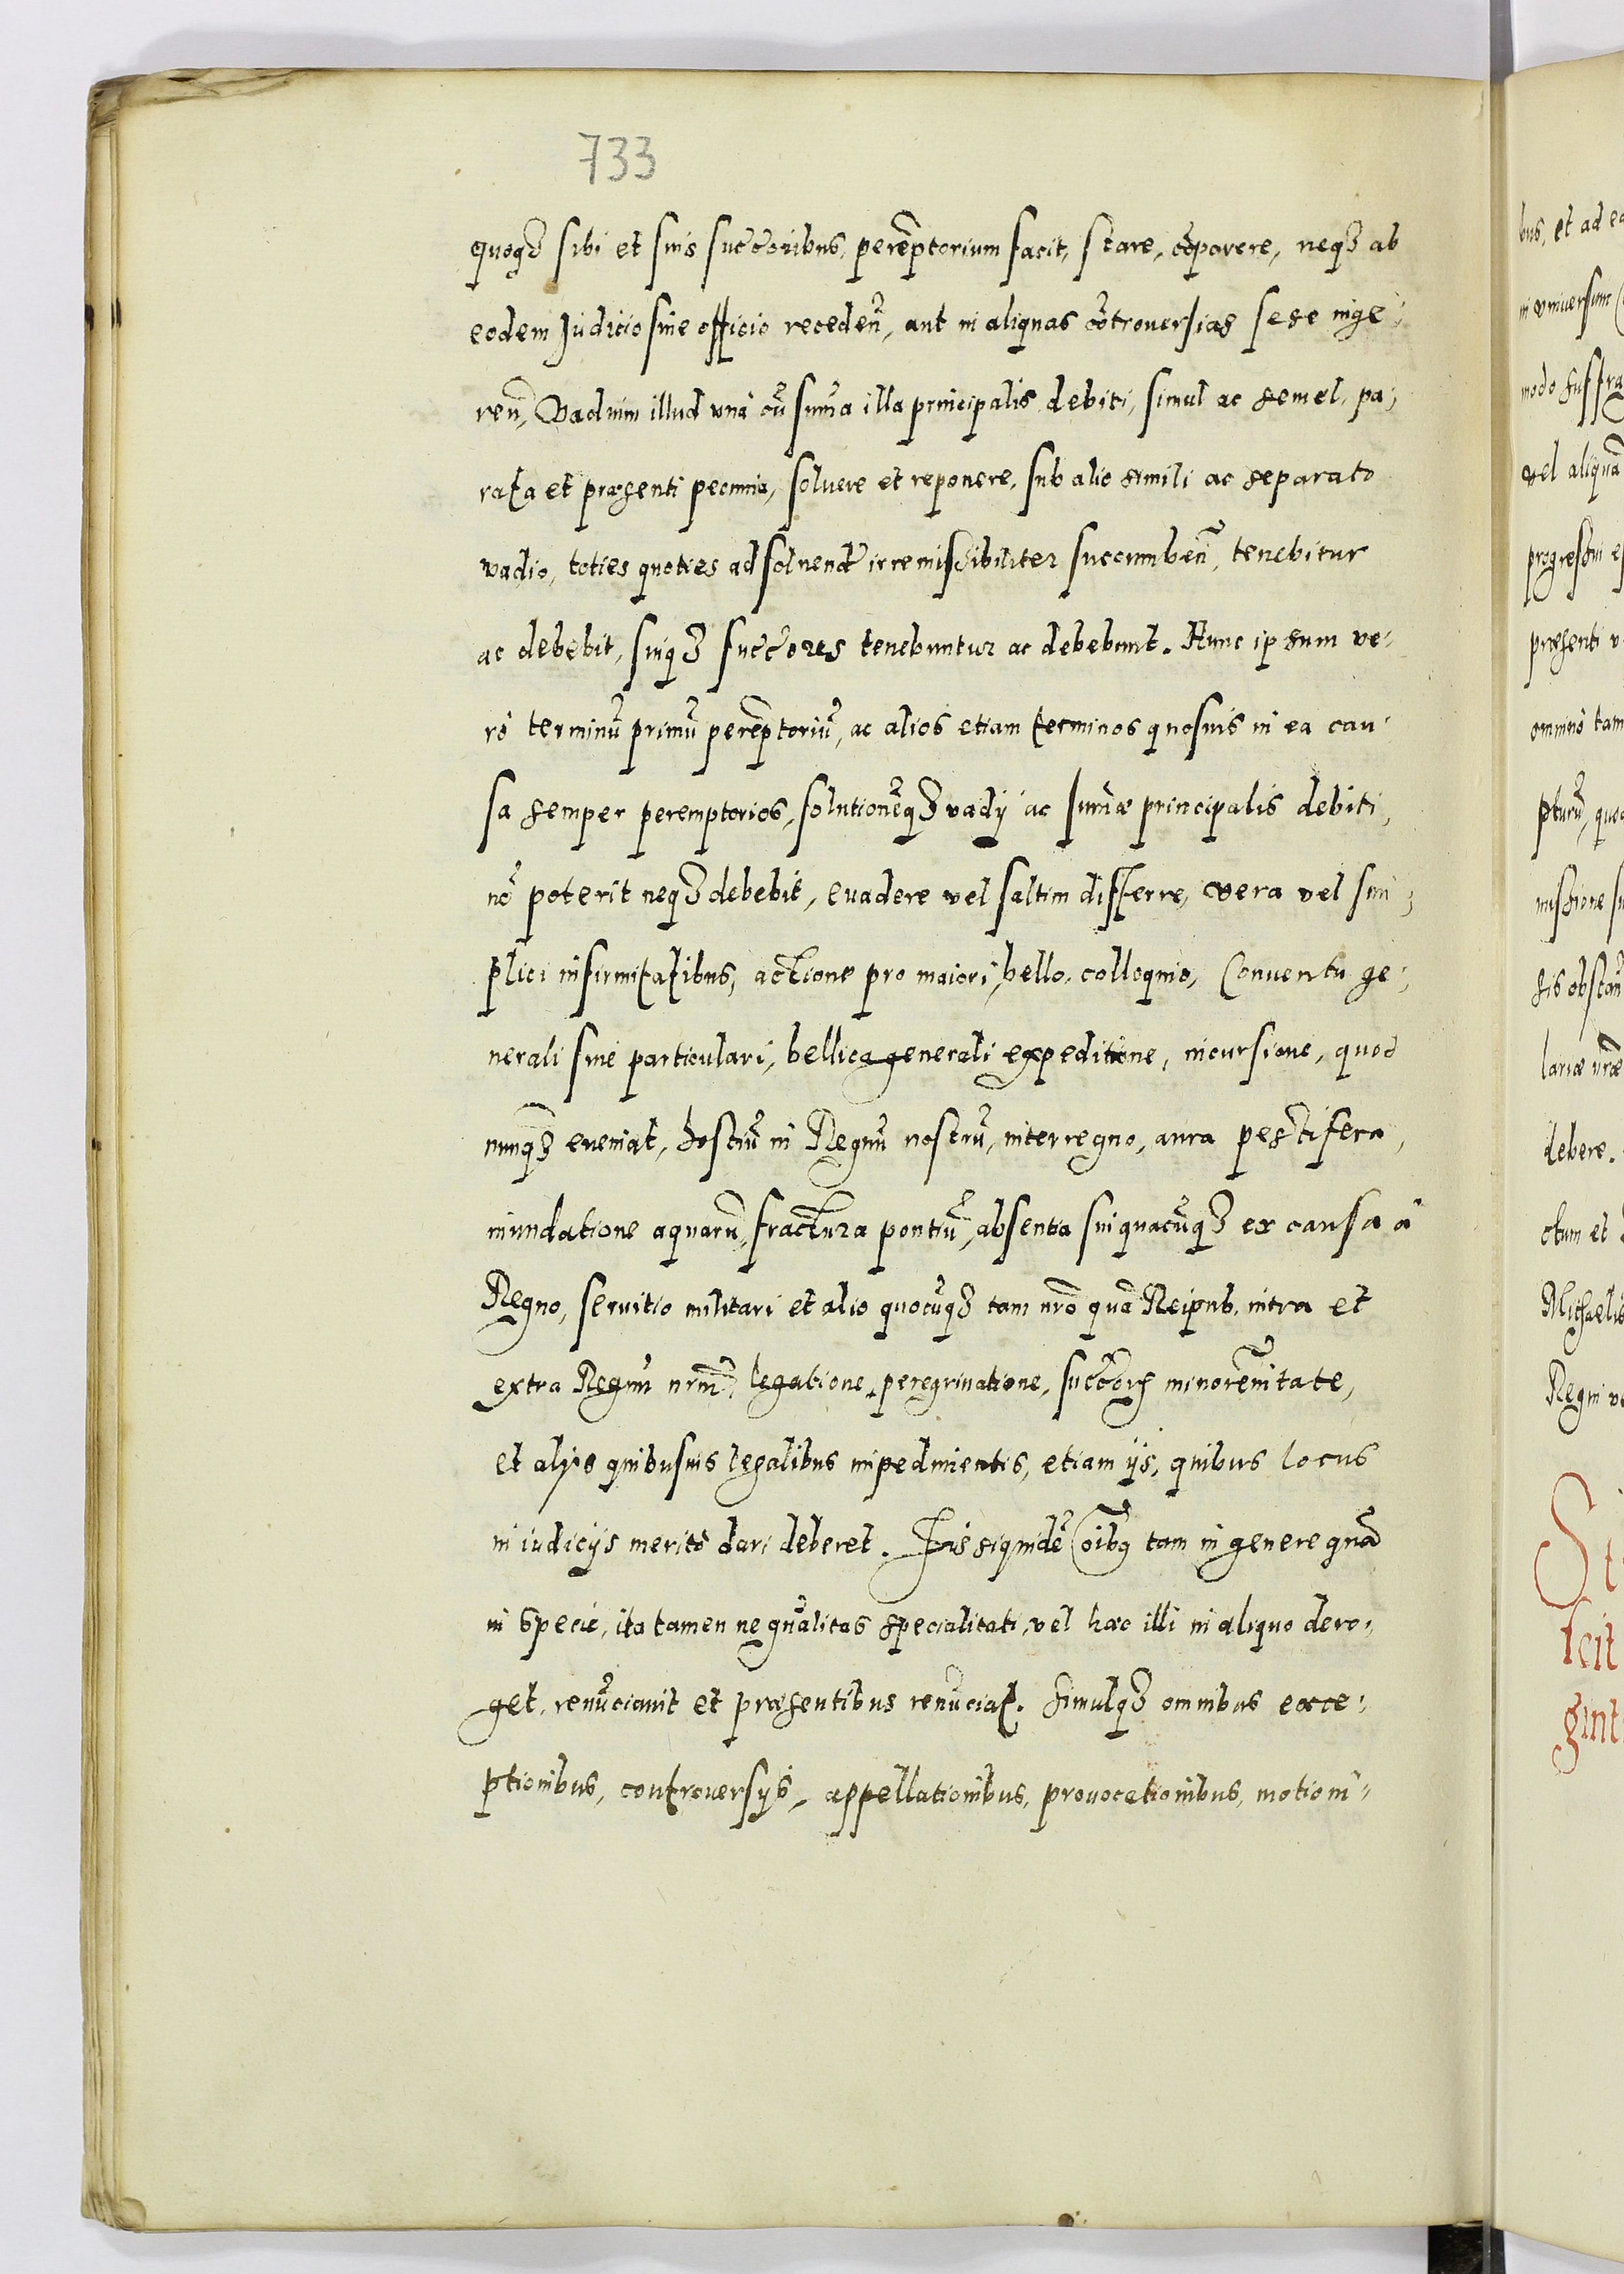 733
quoqз sibi et suis succ̃oribus, perẽptorium facit, stare, cõparere, neqз ab
eodem Judicio siue officio recedeñ, aut in aliquas cõtrouersias sese inge-
reñ, Vadium illud unà cũ sum̃a illa principalis debiti, simul ac semel, pa-
rata et præsenti pecunia, soluere et reponere, sub alio simili ac separato
vadio, toties quoties ad soluend̃ irremissibiliter succumbeñ, tenebitur
ac debebit, suiqз succ̃ores tenebuntur ac debebunt. Hunc ipsum ve-
rò terminũ primũ perẽptoriũ, ac alios etiam terminos quosuis in ea cau-
sa semper peremptorios, solutionẽqз vadij ac sum̃æ principalis debiti,
nõ poterit neqз debebit, euadere vel saltim differre, vera vel sim-
plici infirmitatibus, actione pro maiori, bello, colloquio, Conuentu ge-
nerali siue particulari, bellica generali expeditione, incursione, quod
nunqз eueniat, hostiũ in Regnũ nostrũ, interregno, aura pestifera,
inundatione aquarũ, fractura pontiũ, absentia sui quacũqз ex causa à
Regno, seruitio militari et alio quocũqз tam nr̃o quã Reipub. intra et
extra Regnũ nrm̃, legatione, peregrinatione, succ̃orũ minorẽnitate,
et alijs quibusuis legalibus impedimentis, etiam ijs, quibus locus
in iudicijs meritò dari deberet. His siquidẽ oĩbus tam in genere quã
in specie, ita tamen ne gñalitas specialitati, vel hæc illi in aliquo dero-
get, renũciauit et præsentibus renũciat. Simulqз omnibus exce-
ptionibus, controuersijs, appellationibus, prouocationibus, motioni-
bus, et ad
in vniuersum
modo suffra
vel aliquã
progressui
præsenti
omnino tam
pturũ, quo
missione
sis obstan
lariæ nr̃æ
debere.
ctum et
Michaelis
Regni
St
scit
gint